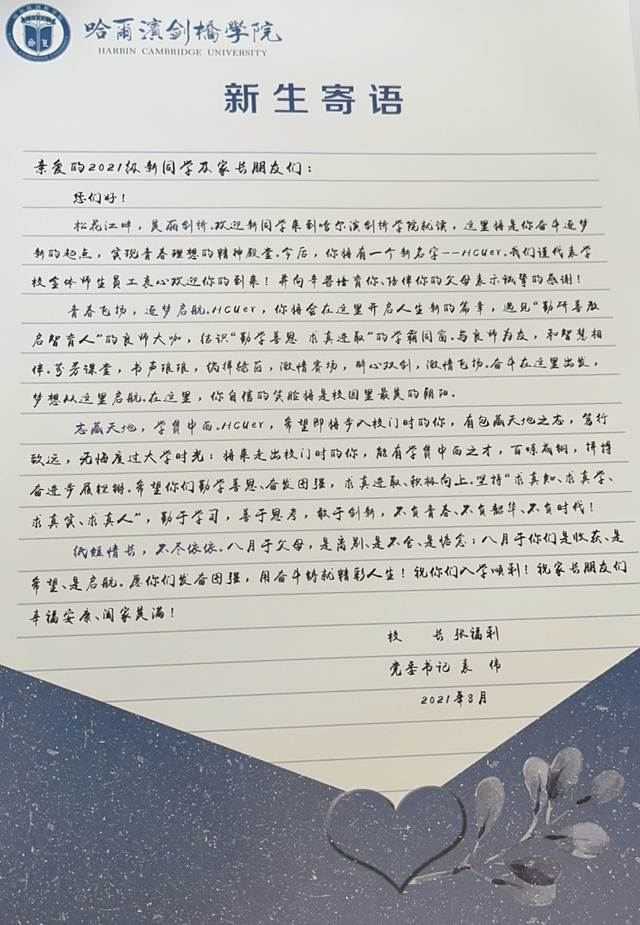 哈爾濱剑橋学院
HARBIN CAMBRIDGE UNIVERSITY
新生寄语
亲爱的2021级新同学及家长朋友们：
您们好！
松花江畔，美丽剑桥.欢迎新同学来到哈尔滨剑桥学院就读，这里将是你奋斗逐梦
新的起点，实现青春理想的精神殿堂.今后，你将有一个新名字——HCUer.我们谨代表学
校全体师生员工衷心欢迎你的到来！并向辛苦培育你、陪伴你的父母表示诚挚的感谢！
青春飞扬，逐梦启航.HCUer，你将会在这里开启人生新的篇章，遇见“勤研善教
启智育人”的良师大咖，结识“勤学善思 求真进取”的学霸同窗.与良师为友，和智慧相
伴.芬芳课堂，书声琅琅，徜徉绿茵，激情赛场，醉心双创，激情飞扬.奋斗在这里出发，
梦想从这里启航.在这里，你自信的笑脸将是校园里最美的朝阳.
志藏天地，学贯中西.HCUer，希望即将步入校门时的你，有包藏天地之志，笃行
致远，无悔度过大学时光；将来走出校门时的你，能有学贯中西之才，百炼成钢，拼搏
奋进步履铿锵.希望你们勤学善思、奋发图强，求真进取、积极向上.坚持“求真知、求真学、
求真实、求真人”，勤于学习，善于思考，敢于创新，不负青春、不负韶华、不负时代！
纸短情长，不尽依依.八月于父母，是离别、是不舍、是惦念；八月于你们是收获、是
希望、是启航.愿你们发奋图强，用奋斗铸就精彩人生！祝你们入学顺利！祝家长朋友们
幸福安康、阖家美满！
校 长 张福利
党委书记 袁 伟
2021年8月